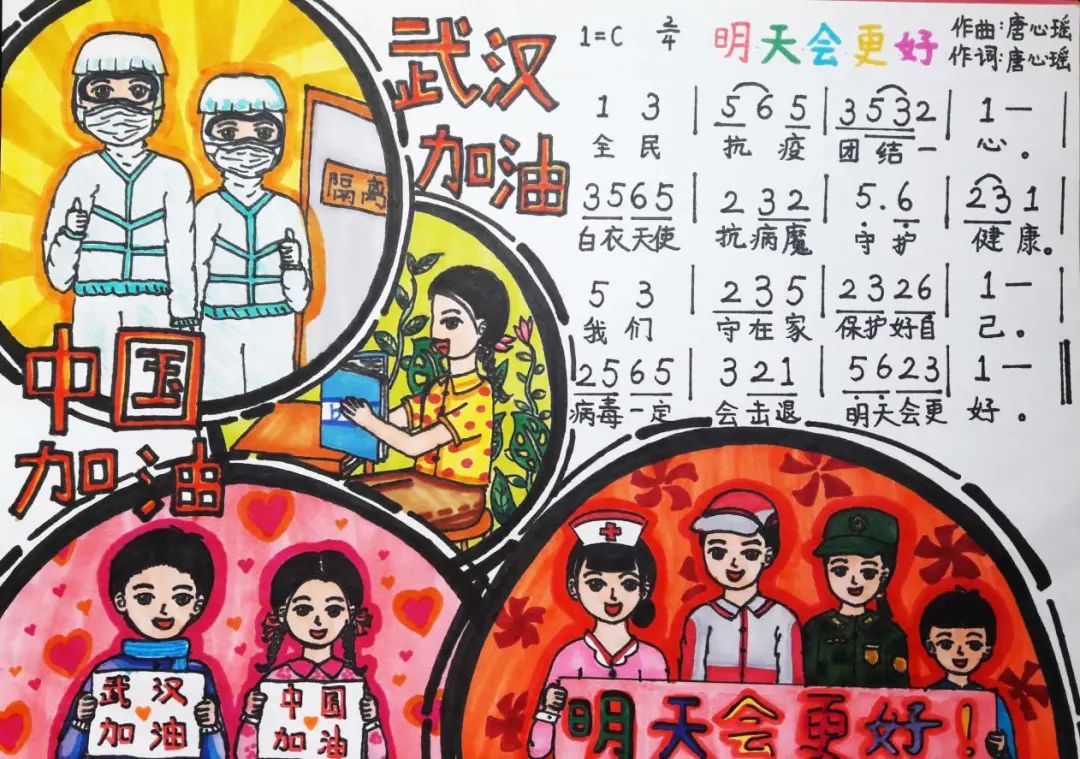 武汉
加油
1=C 2/4 明天会更好
作曲:唐心瑶
作词:唐心瑶
1 3 | 5 6 5 | 3532 | 1 — |
全民 抗疫 团结一 心。
3565 | 2 32 | 5.6 | 231 |
白衣天使 抗病魔 守护 健康。
5 3 | 235 | 2326 | 1 — |
我们 守在家 保护好自 己。
2565 | 3 21 | 5623 | 1 — ‖
病毒一定 会击退 明天会更 好。
隔离
中国
加油
武汉
加油
中国
加油
明天会更好!